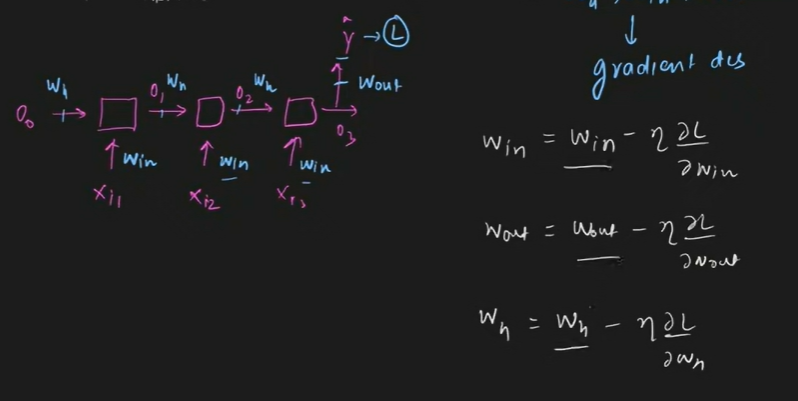 ŷ → L
Wout
O₀ Wh O₁ Wh O₂ Wh O₃
Win Win Win
Xi1 Xi2 Xi3
gradient des
Win = Win - η ∂L/∂Win
Wout = Wout - η ∂L/∂Wout
Wh = Wh - η ∂L/∂Wh